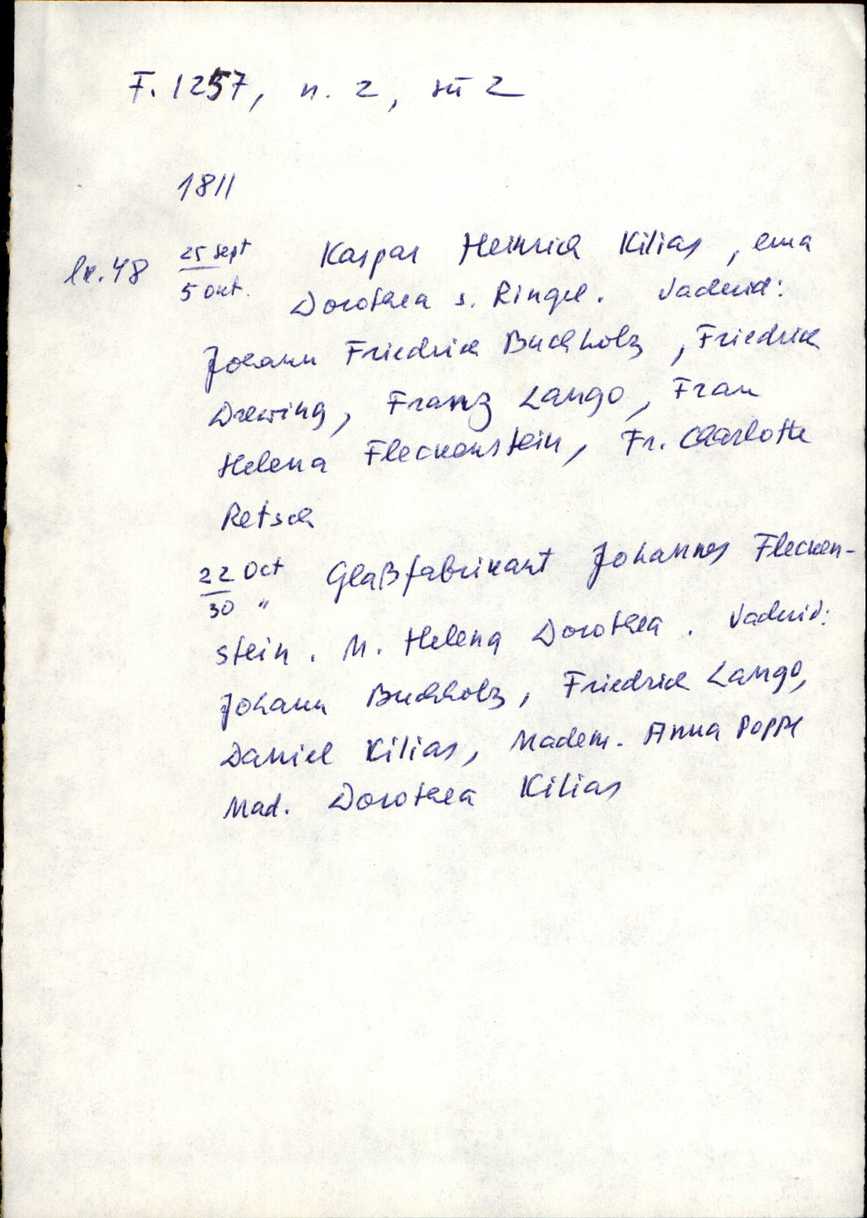 F. 1257, n. 2, sü 2
1811
lk. 48 25 sept Kaspar Heinrich Kilias, ema
5 okt. Dorothea s. Ringel. Vaderid:
Johann Friedrich Buchholz, Friedrich
Drewing, Franz Lango, Frau
Helena Fleckenstein, Fr. Charlotte
Retsch
22 Oct Glaßfabrikant Johannes Flecken-
30 "
stein. M. Helena Dorothea. Vaderid:
Johann Buchholz, Friedrich Lango,
Daniel Kilias, Madem. Anna Poppe
Mad. Dorothea Kilias